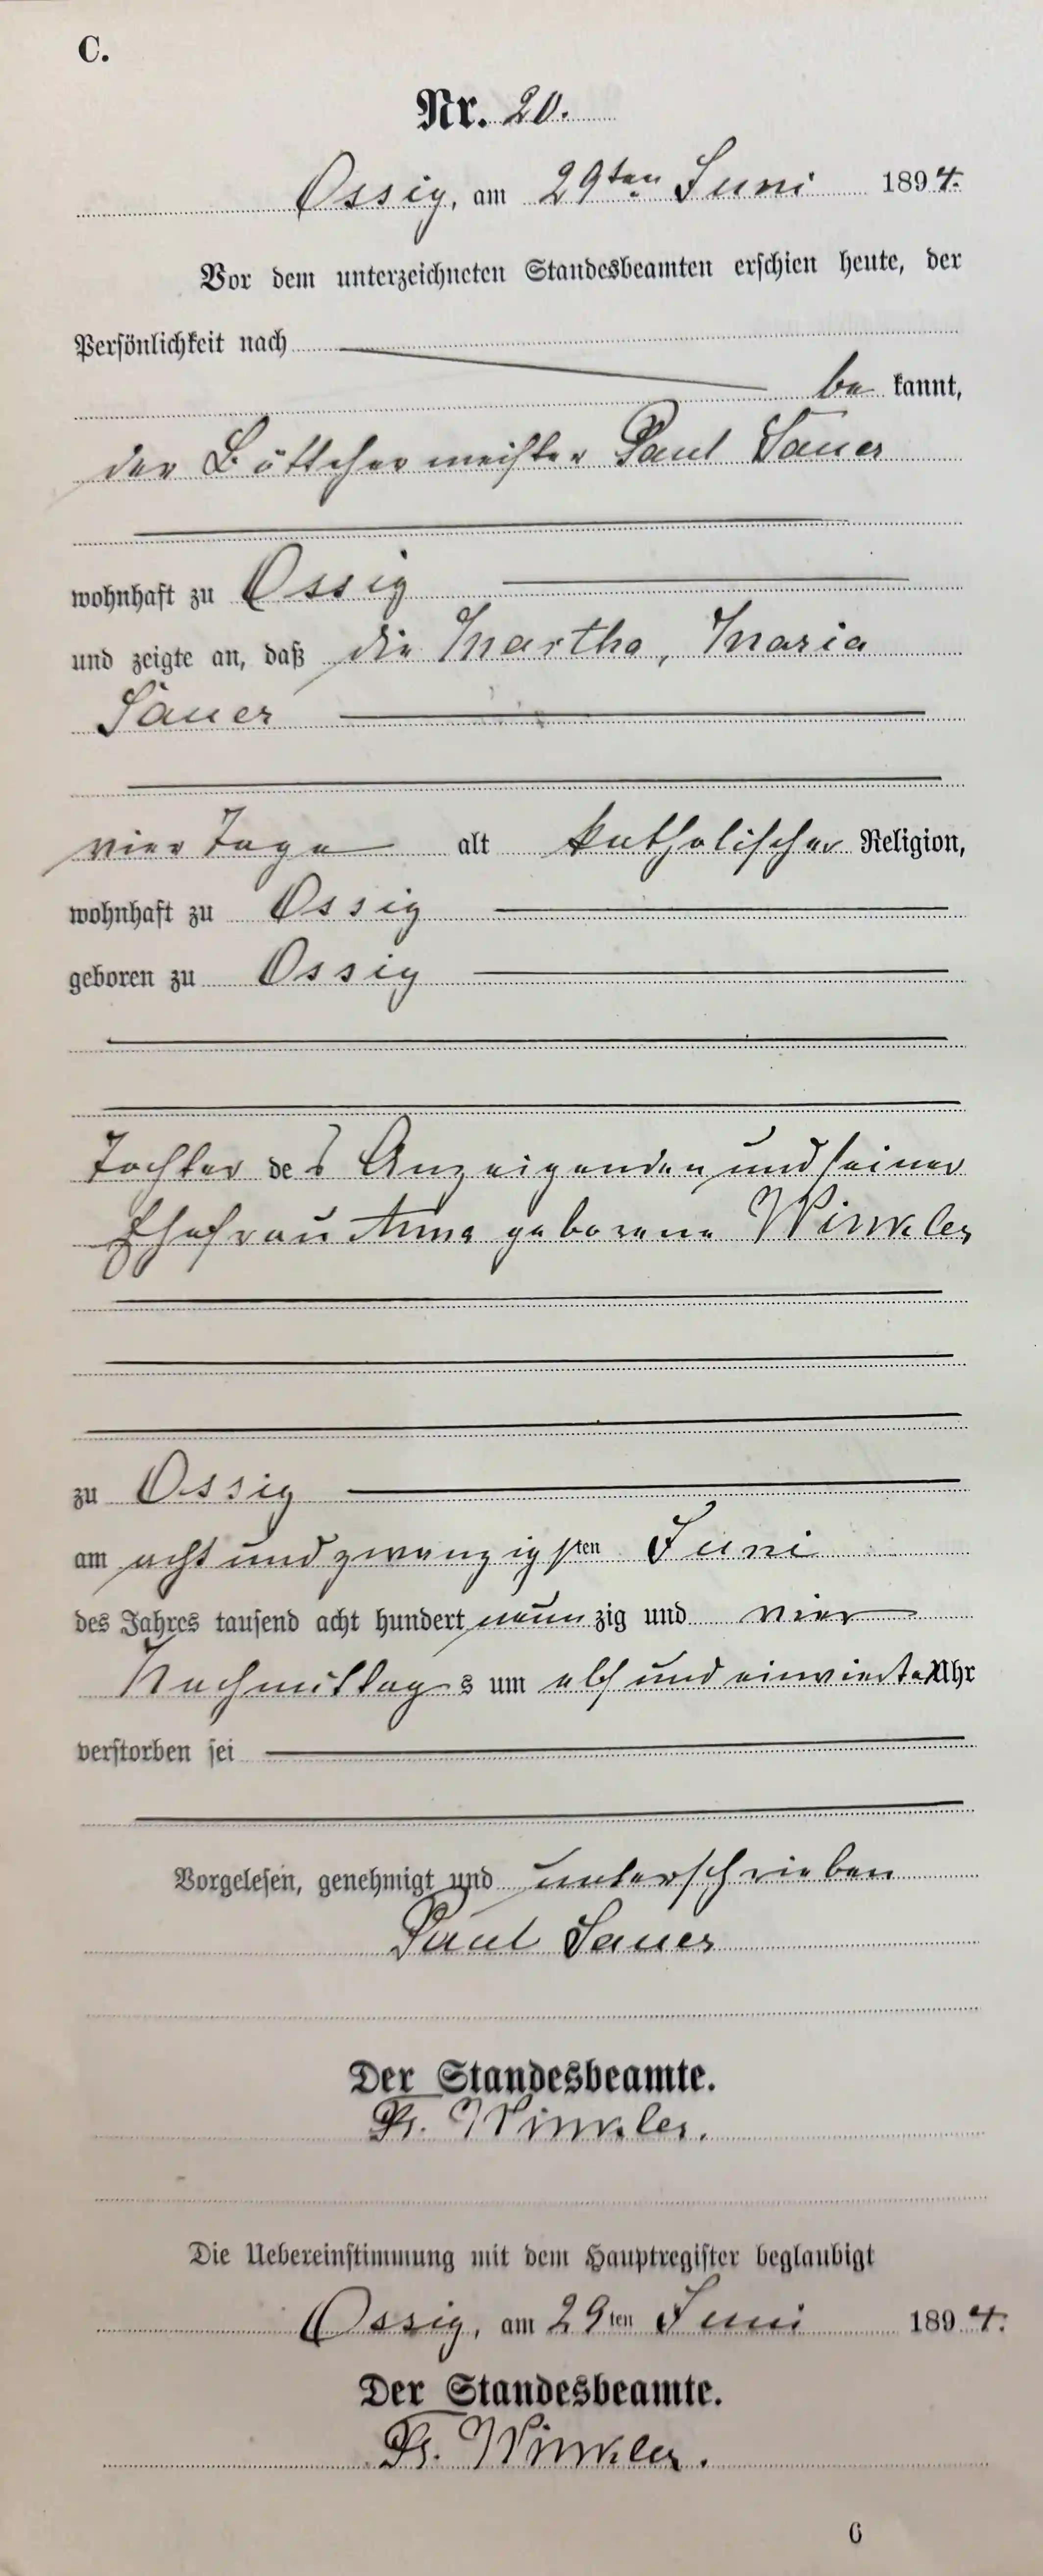 C.
Nr. 20.
Ossig, am 29ten Juni 1894.
Vor dem unterzeichneten Standesbeamten erschien heute, der
Persönlichkeit nach
be kannt,
der Böttchermeister Paul Sauer
wohnhaft zu Ossig
und zeigte an, daß die Martha, Maria
Sauer
vier Tage alt katholischer Religion,
wohnhaft zu Ossig
geboren zu Ossig
Tochter des Anzeigenden und seiner
Ehefrau Anna geborene Winkler
zu Ossig
am acht und zwanzigsten Juni
des Jahres tausend acht hundert neunzig und vier
Nachmittags um elf und einviertel Uhr
verstorben sei
Vorgelesen, genehmigt und unterschrieben
Paul Sauer
Der Standesbeamte.
Winkler.
Die Uebereinstimmung mit dem Hauptregister beglaubigt
Ossig, am 29ten Juni 1894.
Der Standesbeamte.
Winkler.
6